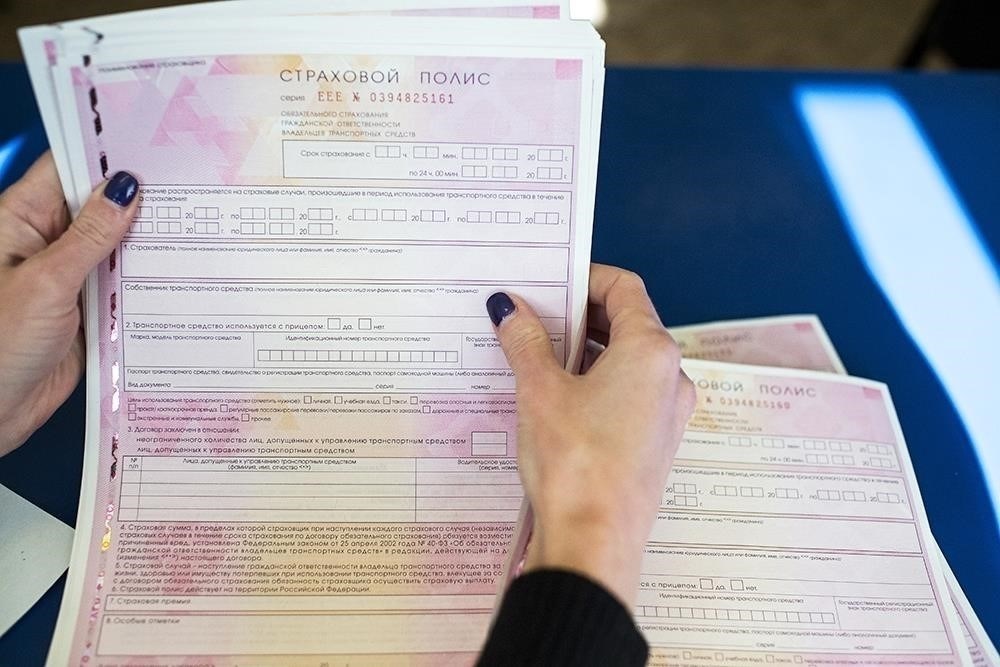 Наименование страховщика
СТРАХОВОЙ ПОЛИС
серия ЕЕЕ № 0394825161
ОБЯЗАТЕЛЬНОГО СТРАХОВАНИЯ
ГРАЖДАНСКОЙ ОТВЕТСТВЕННОСТИ
ВЛАДЕЛЬЦЕВ ТРАНСПОРТНЫХ СРЕДСТВ
Срок страхования с ч. мин. 20 г.
по 24 ч. 00 мин. 20 г.
распространяется на страховые случаи, произошедшие в период использования транспортного средства в течение
страхования
20 г. по 20 г. с 20 г. по 20 г.
20 г. по 20 г.
1. Страхователь (полное наименование юридического лица или фамилия, имя, отчество гражданина)
Собственник транспортного средства (полное наименование юридического лица или фамилия, имя, отчество гражданина)
2. Транспортное средство используется с прицепом: да, нет.
Марка, модель транспортного средства Идентификационный номер транспортного средства
Паспорт транспортного средства, свидетельство о регистрации транспортного средства, паспорт самоходной машины (либо аналогичный
Вид документа серия номер
Цель использования транспортного средства (отметить нужное): личная, учебная езда, такси, перевозка опасных и легковоспламен
прокат/краткосрочная аренда, регулярные пассажирские перевозки/перевозки пассажиров по заказам, дорожные и специальные тран
экстренные и коммунальные службы, прочее.
3. Договор заключен в отношении:
неограниченного количества лиц, допущенных к управлению транспортным средством
лиц, допущенных к управлению транспортным средством
№ п/п Лица, допущенные к управлению транспортным средством Водительское удосто
(фамилия, имя, отчество) (серия, номер)
4. Страховая сумма, в пределах которой страховщик при наступлении каждого страхового случая (независимо
страховых случаев в течение срока страхования по договору обязательного страхования) обязуется возместить
причиненный вред, установлена Федеральным законом от 25 апреля 2002 года № 40-ФЗ «Об обязательном
гражданской ответственности владельцев транспортных средств» в редакции, действующей на д
(изменения) настоящего договора.
5. Страховой случай - наступление гражданской ответственности владельца транспортного средства за
жизни, здоровью или имуществу потерпевших при использовании транспортного средства, влекущее за со
с договором обязательного страхования обязанность страховщика осуществить страховую выплату.
6. Страховой полис действует на территории Российской Федерации.
7. Страховая премия
8. Особые отметки
20 г.
ПОЛИС
СТРАХОВОЙ ПОЛИС
№ 0394825160
СТРАХОВАНИЯ
ОТВЕТСТВЕННОСТИ
ТРАНСПОРТНЫХ СРЕДСТВ
страхования с ч. мин. 20 г.
по 24 ч. 00 мин. 20 г.
произошедшие в период использования транспортного средства в течение
20 г. с 20 г. по 20 г.
20 г.
или фамилия, имя, отчество гражданина)
с прицепом: да, нет.
Идентификационный номер транспортного средства Государственный регистрационный
знак транспортного средства
о регистрации транспортного средства, паспорт самоходной машины (либо аналогичный документ)
серия номер